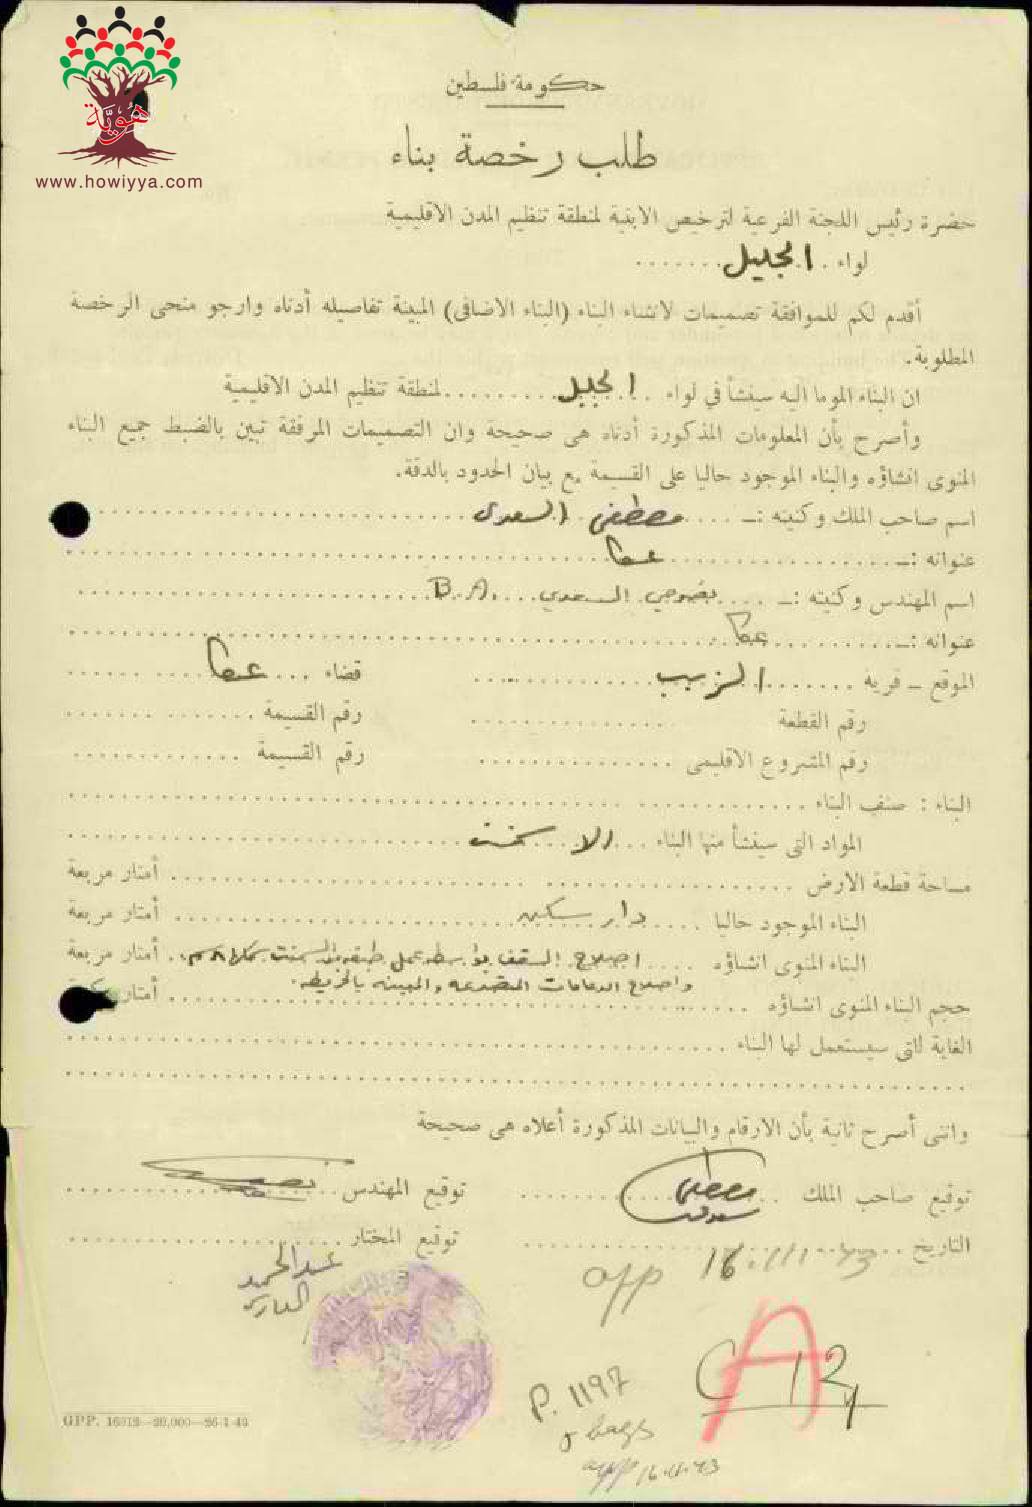 هويّة
www.howiyya.com
حكومة فلسطين
طلب رخصة بناء
حضرة رئيس اللجنة الفرعية لترخيص الابنية لمنطقة تنظيم المدن الاقليمية
لواء . الجليل . . . . . . .
أقدم لكم للموافقة تصميمات لانشاء البناء (البناء الاضافى) المبينة تفاصيله أدناه وارجو منحى الرخصة
المطلوبة.
ان البناء الموما اليه سينشأ في لواء . . الجليل . . . . . . . . . لمنطقة تنظيم المدن الاقليمية
وأصرح بأن المعلومات المذكورة أدناه هى صحيحة وان التصميمات المرفقة تبين بالضبط جميع البناء
المنوى انشاؤه والبناء الموجود حاليا على القسيمة مع بيان الحدود بالدقة.
اسم صاحب الملك وكنيته :ــ . . . . مصطفى السعدى . . . . . . . .
عنوانه :ــ . . . . . . . . عكا . . . . . . . .
اسم المهندس وكنيته :ــ . . . . السعدي . . . . B.A. . . . . . . . .
عنوانه :ــ . . . . . . . . عكا . . . . . . . .
الموقع ــ قرية . . . . . . . الزيب . . . . . . . . قضاء . . . عكا . . . . . . . .
رقم القطعة . . . . . . . . رقم القسيمة . . . . . . . .
رقم المشروع الاقليمى . . . . . . . . رقم القسيمة . . . . . . . .
البناء : صنف البناء . . . . . . . .
المواد التى سينشأ منها البناء . . . الاسمنت . . . . . . . .
مساحة قطعة الارض . . . . . . . . أمتار مربعة
البناء الموجود حاليا . . . . دار سكن . . . . . . . . أمتار مربعة
البناء المنوى انشاؤه . . . . اصلاح السقف بواسطة عمل طبقة من السمنت . . أمتار مربعة
واصلاح الدعامات والمبينه بالخريطه.
حجم البناء المنوى انشاؤه . . . . . . . . أمتار
الغاية لاتى سيستعمل لها البناء . . . . . . . .
وانى أصرح ثانية بأن الارقام والبيانات المذكورة أعلاه هى صحيحة
توقيع صاحب الملك . . مصطفى سعدى . . . . . . . . توقيع المهندس . . . . . . . .
التاريخ . . . . 16.11.43 . . . . . . . . توقيع المختار . . . . . . . .
app
عبد الحميد
A
C
P. 1197
bags
app 16.11.43
GPP. 16012—20,000—26-1-43